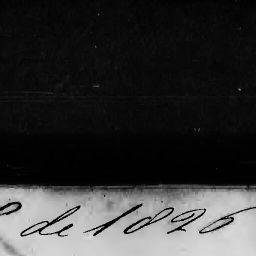 de 1826